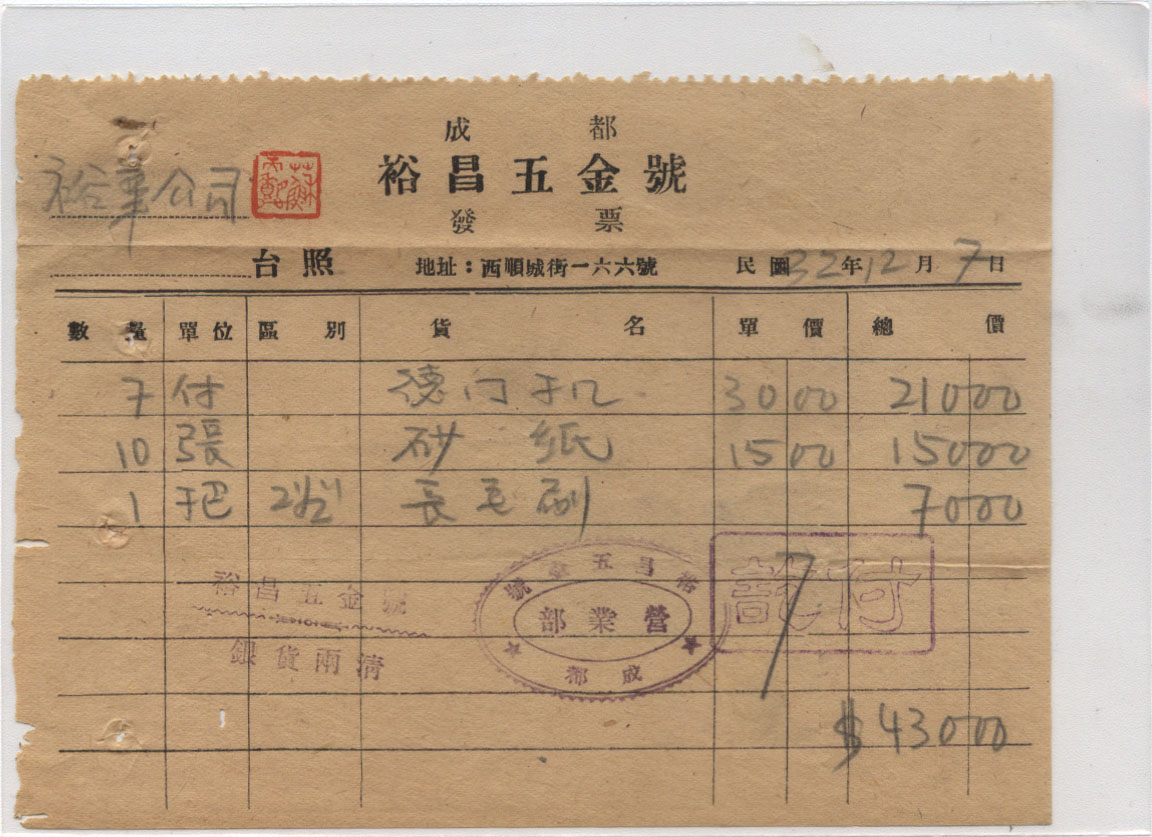 成都
裕昌五金號
發票
裕華公司
台照 地址：西順城街一六六號 民國32年12月7日
數量 單位 區別 貨名 單價 總價
7 付 德门手几 3000 21000
10 張 砂纸 1500 15000
1 把 2½ 長毛刷 7000
裕昌五金號
銀貨兩清
裕昌五金號
營業部
成都
付訖
$43000